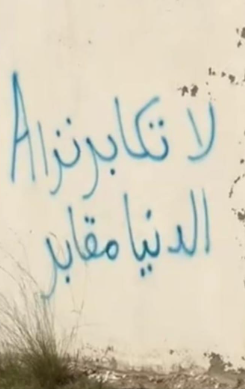 لا تكابر نزاA
الدنيا مقابر